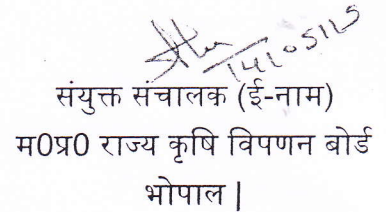 संयुक्त संचालक (ई-नाम)
म0प्र0 राज्य कृषि विपणन बोर्ड
भोपाल |